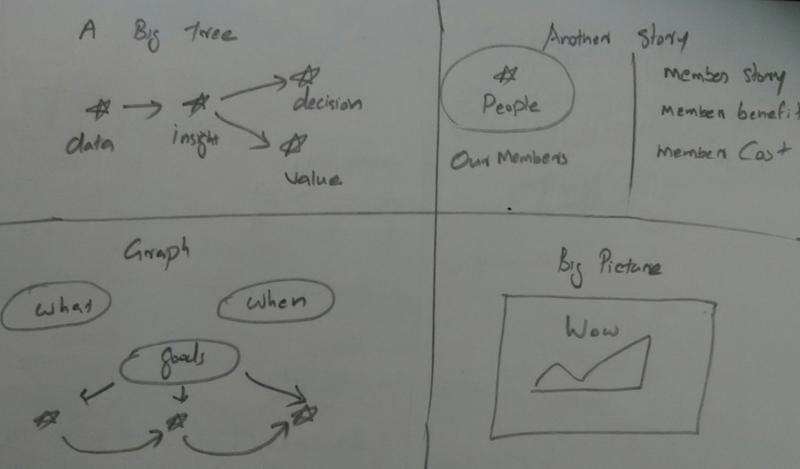 A Big Tree
decision
data
insight
value
Another Story
People
Our Members
Member Story
Member benefit
Member Cost
Graph
what
when
goals
Big Picture
Wow